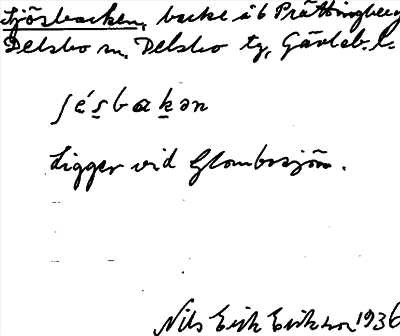 Sjösbacken, backe å 6 Prästtingberg
Delsbo sn, Delsbo tg, Gävleb. l.
ʃésbakən
Ligger vid Glombosjön.
Nils Erik Erikson 1936